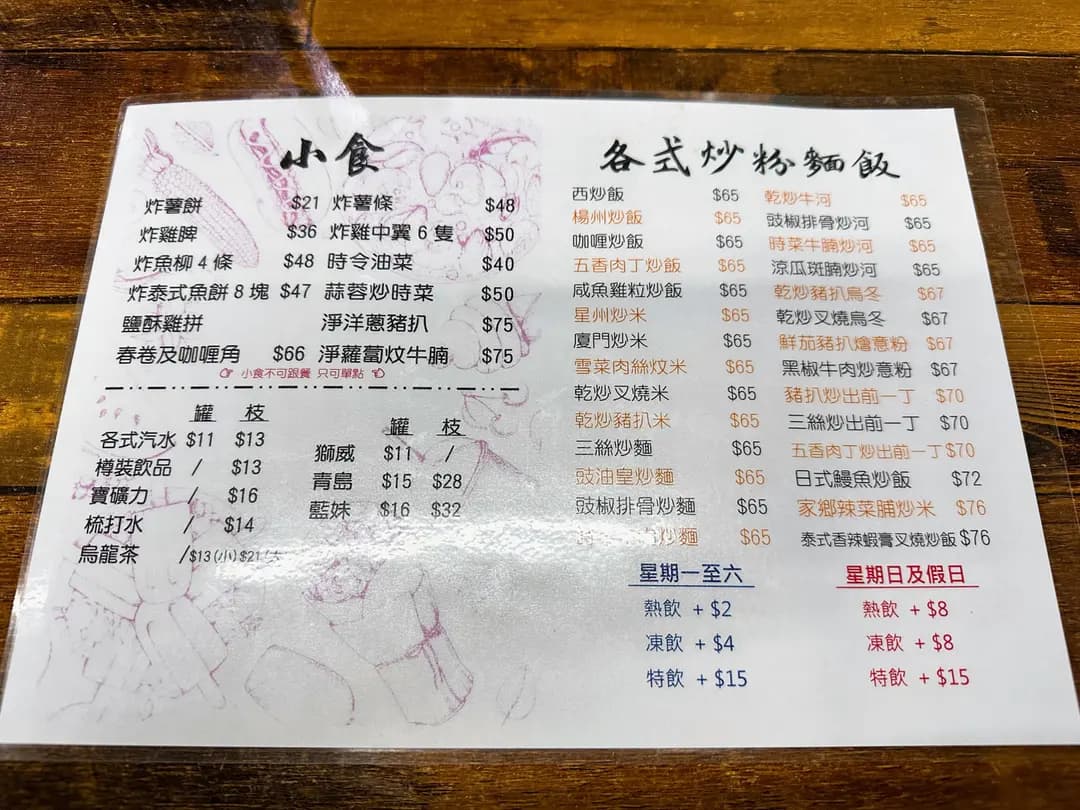 小食
炸薯餅 $21 炸薯條 $48
炸雞髀 $36 炸雞中翼6隻 $50
炸魚柳4條 $48 時令油菜 $40
炸泰式魚餅8塊 $47 蒜蓉炒時菜 $50
鹽酥雞拼 淨洋蔥豬扒 $75
春卷及咖喱角 $66 淨蘿蔔炆牛腩 $75
小食不可跟餐 只可單點
罐 枝
各式汽水 $11 $13
樽裝飲品 / $13
寶礦力 / $16
梳打水 / $14
烏龍茶 /$13(小)$21(大
罐 枝
獅威 $11 /
青島 $15 $28
藍妹 $16 $32
各式炒粉麵飯
西炒飯 $65
楊州炒飯 $65
咖喱炒飯 $65
五香肉丁炒飯 $65
咸魚雞粒炒飯 $65
星州炒米 $65
廈門炒米 $65
雪菜肉絲炆米 $65
乾炒叉燒米 $65
乾炒豬扒米 $65
三絲炒麵 $65
豉油皇炒麵 $65
豉椒排骨炒麵 $65
炒麵 $65
乾炒牛河 $65
豉椒排骨炒河 $65
時菜牛腩炒河 $65
涼瓜斑腩炒河 $65
乾炒豬扒烏冬 $67
乾炒叉燒烏冬 $67
鮮茄豬扒燴意粉 $67
黑椒牛肉炒意粉 $67
豬扒炒出前一丁 $70
三絲炒出前一丁 $70
五香肉丁炒出前一丁 $70
日式鰻魚炒飯 $72
家鄉辣菜脯炒米 $76
泰式香辣蝦膏叉燒炒飯 $76
星期一至六
熱飲 + $2
凍飲 + $4
特飲 + $15
星期日及假日
熱飲 + $8
凍飲 + $8
特飲 + $15